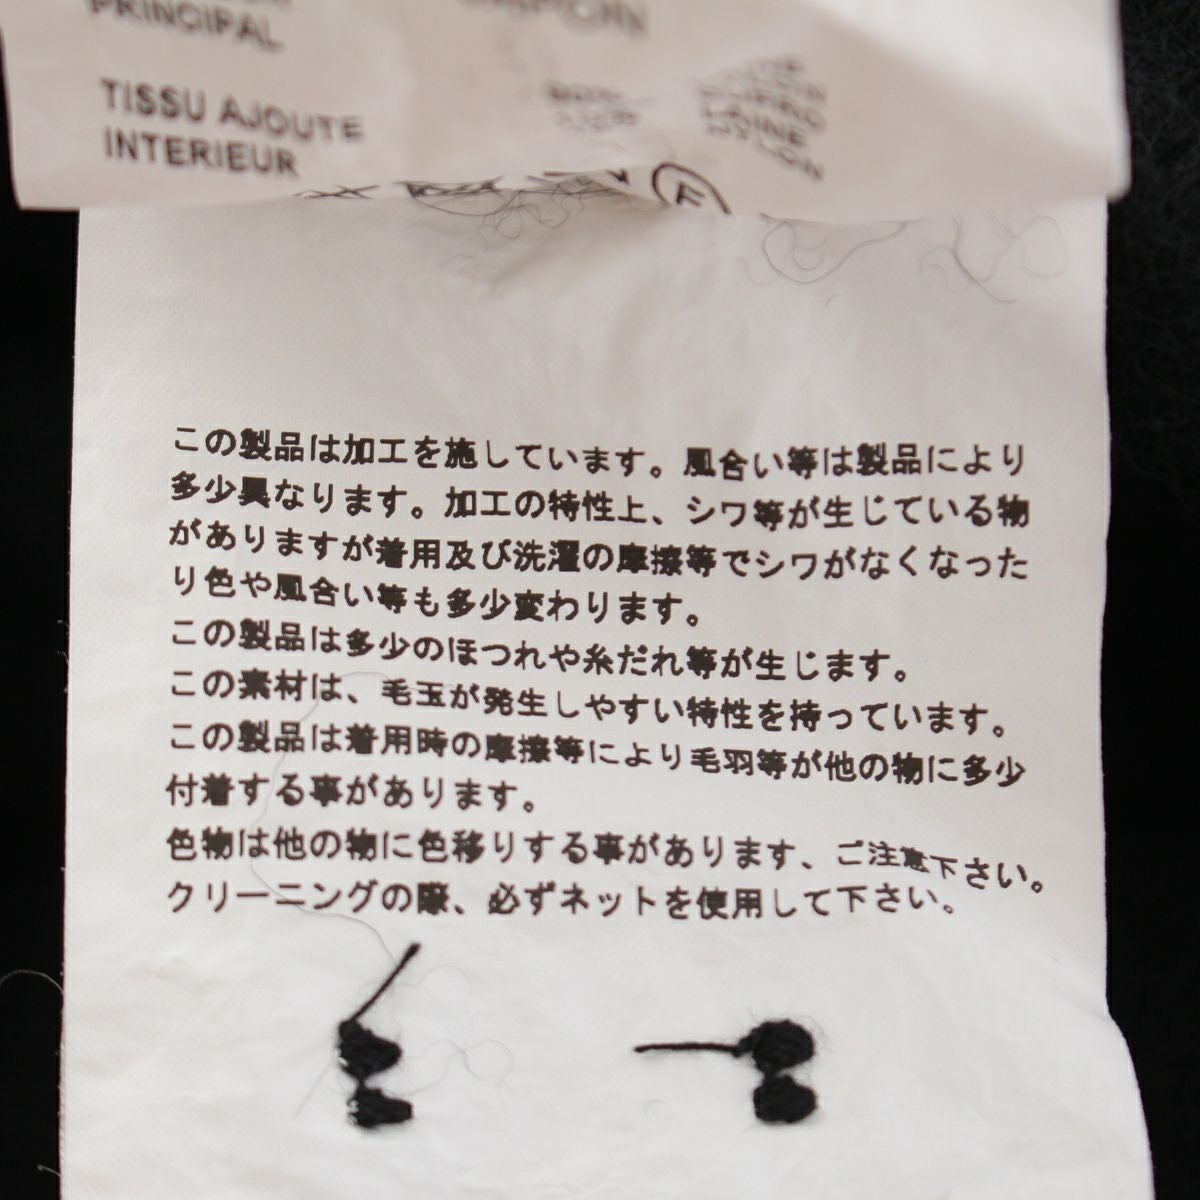 PRINCIPAL
TISSU AJOUTE
INTERIEUR
LAINE
NYLON
この製品は加工を施しています。風合い等は製品により
多少異なります。加工の特性上、シワ等が生じている物
がありますが着用及び洗濯の摩擦等でシワがなくなった
り色や風合い等も多少変わります。
この製品は多少のほつれや糸だれ等が生じます。
この素材は、毛玉が発生しやすい特性を持っています。
この製品は着用時の摩擦等により毛羽等が他の物に多少
付着する事があります。
色物は他の物に色移りする事があります、ご注意下さい。
クリーニングの際、必ずネットを使用して下さい。